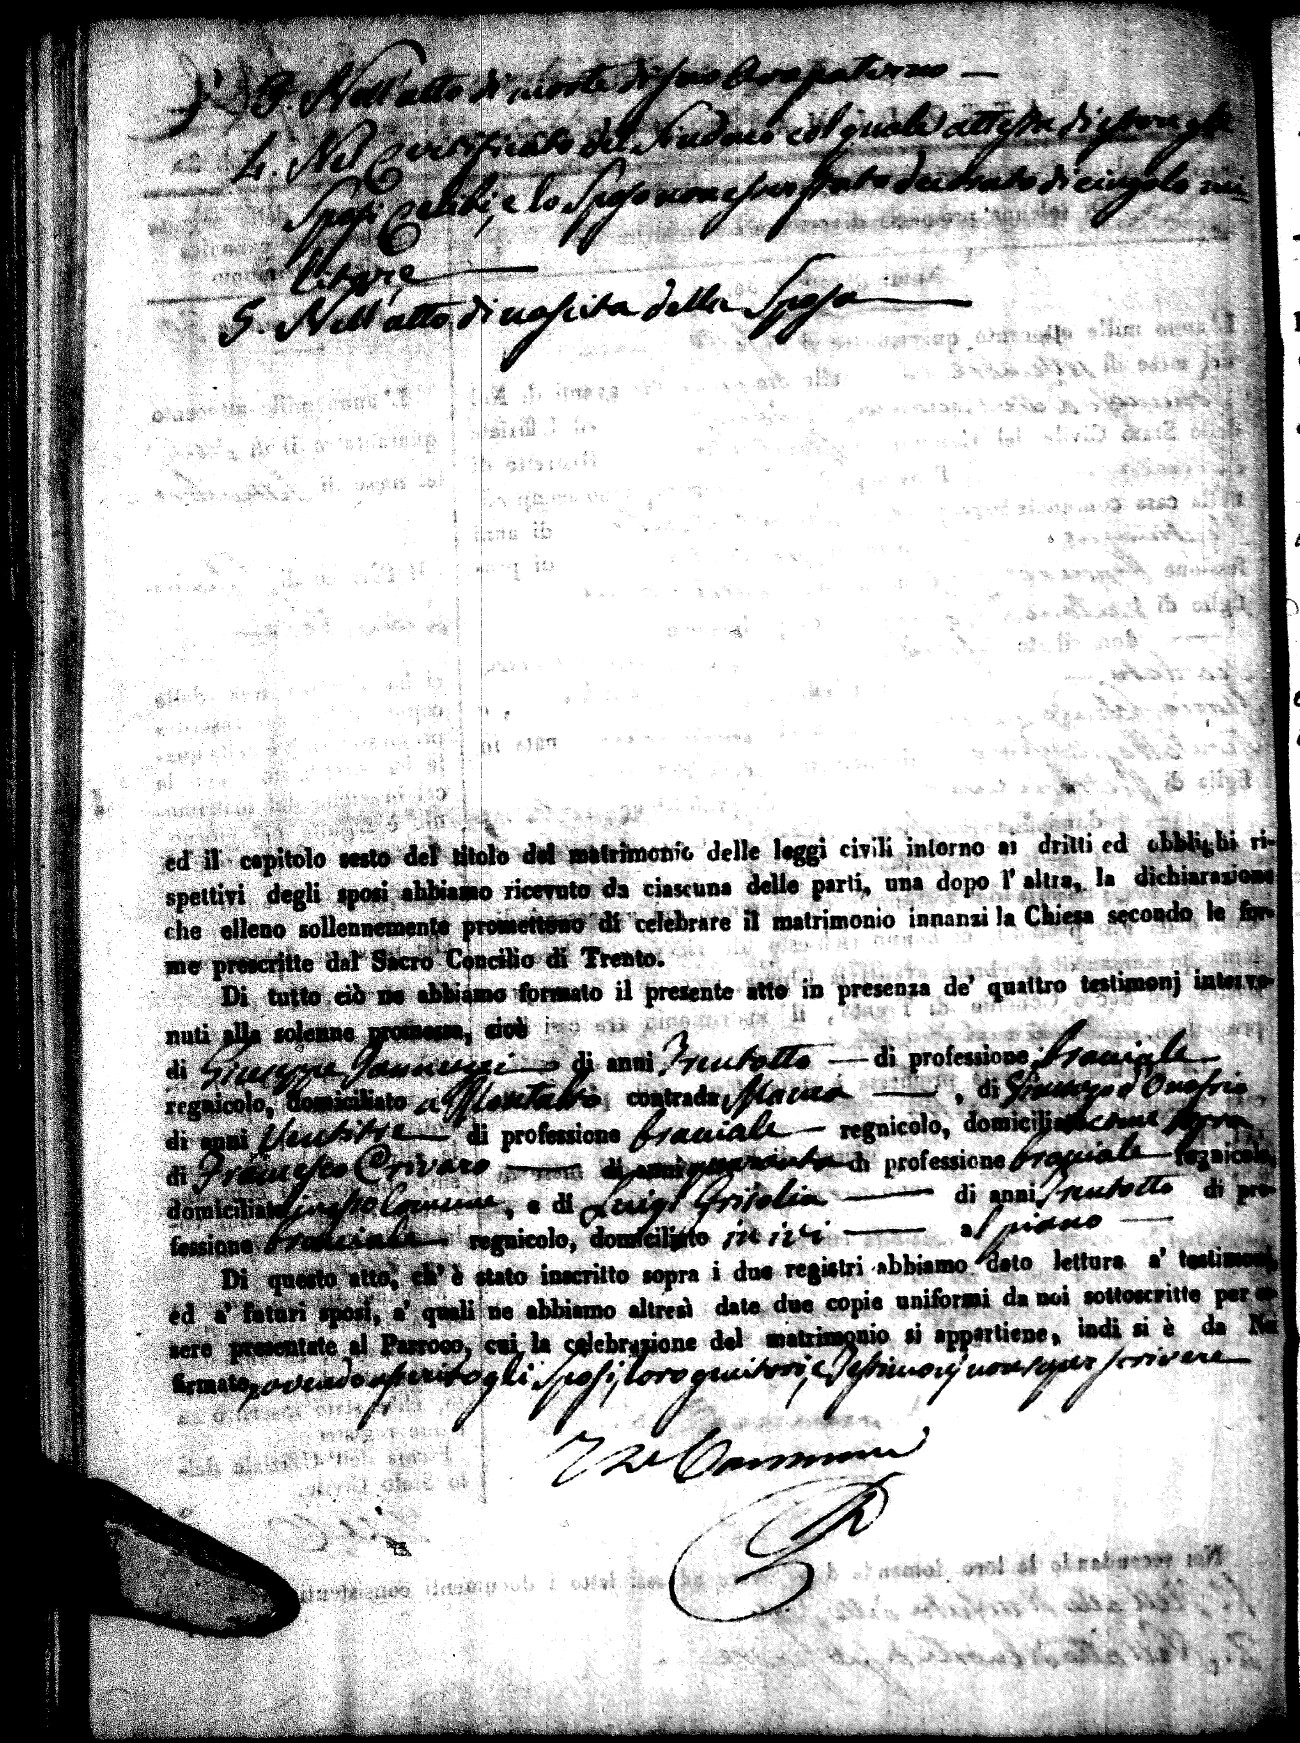 3. Nell'atto di morte di suo Avo paterno —
4. Nel Certificato del Sindaco col quale attesta di essere gli
Sposi Celibi, e lo Sposo non essere stato decorato di cingolo mi-
litare
5. Nell'atto di nascita della Sposa
ed il capitolo sesto del titolo del matrimonio delle leggi civili intorno ai dritti ed obblighi ri-
spettivi degli sposi abbiamo ricevuto da ciascuna delle parti, una dopo l'altra, la dichiarazione
che elleno sollennemente promettono di celebrare il matrimonio innanzi la Chiesa secondo le for-
me prescritte dal Sacro Concilio di Trento.
Di tutto ciò ne abbiamo formato il presente atto in presenza de' quattro testimonj interve-
nuti alla solenne promessa, cioè
di Giuseppe Iannuzzi di anni Trentotto — di professione bracciale
regnicolo, domiciliato a contrada , di d'Onofrio
di anni Ventitre di professione bracciale — regnicolo, domiciliato come sopra
di Francesco Crivaro — di anni quaranta di professione bracciale regnicolo,
domiciliato in esso Comune, e di Luigi Grisolia — di anni Trentotto di pro-
fessione bracciale regnicolo, domiciliato ivi — al piano —
Di questo atto, ch'è stato inscritto sopra i due registri abbiamo dato lettura a' testimonj,
ed a' futuri sposi, a' quali ne abbiamo altresì date due copie uniformi da noi sottoscritte per es-
sere presentate al Parroco, cui la celebrazione del matrimonio si appartiene, indi si è da Noi
firmato, avendo asserito gli Sposi, loro genitori, e Testimonj non saper scrivere